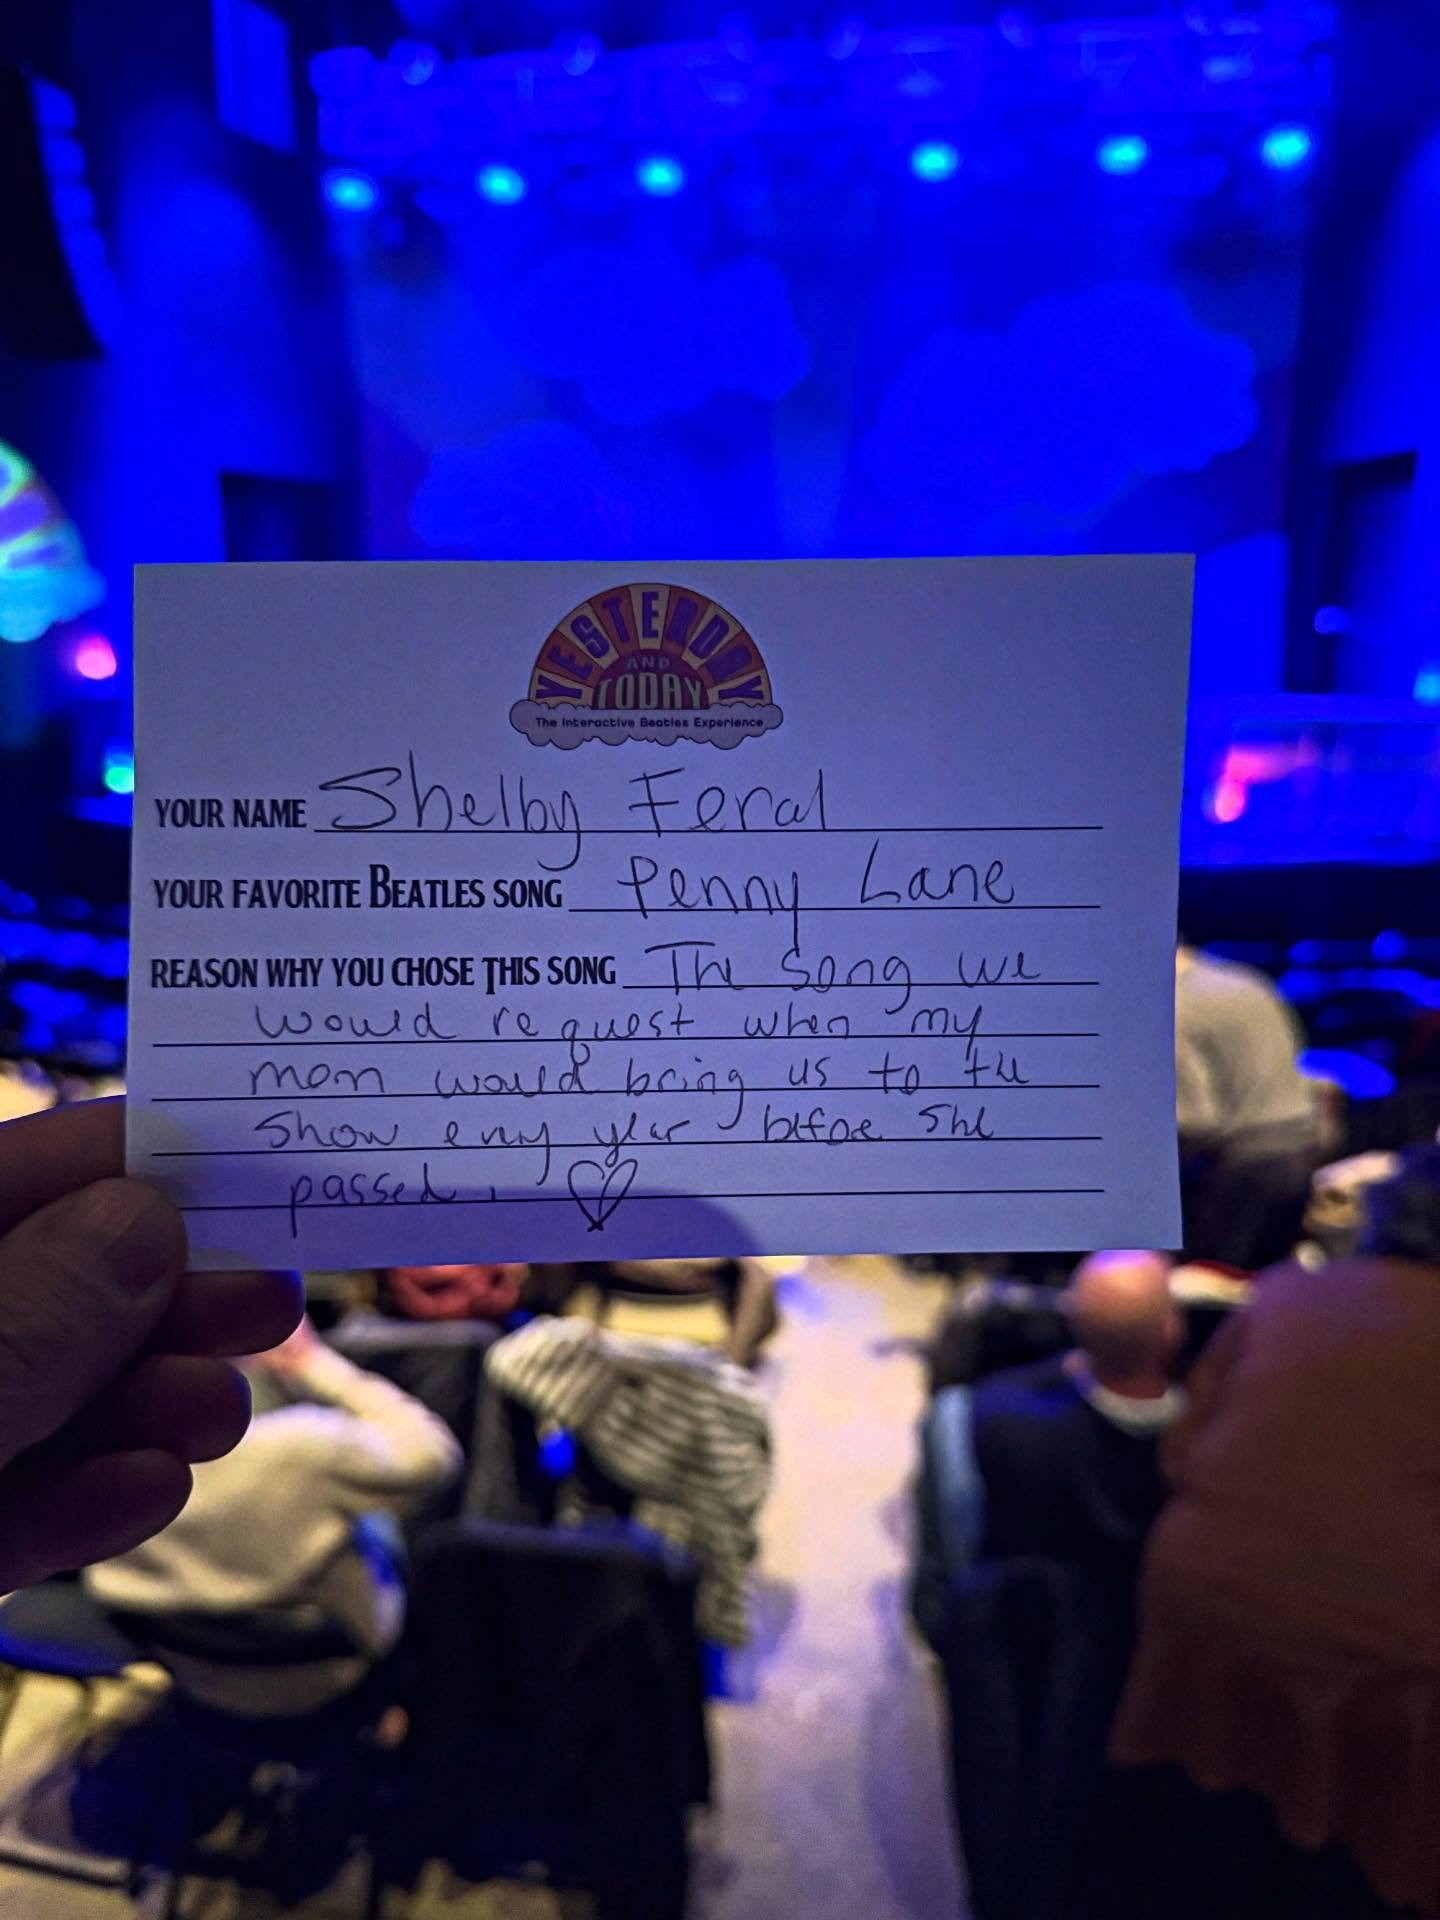 YESTERDAY
AND
TODAY
The Interactive Beatles Experience
YOUR NAME Shelby Feral
YOUR FAVORITE BEATLES SONG Penny Lane
REASON WHY YOU CHOSE THIS SONG The song we
would request when my
mom would bring us to the
show every year before she
passed.